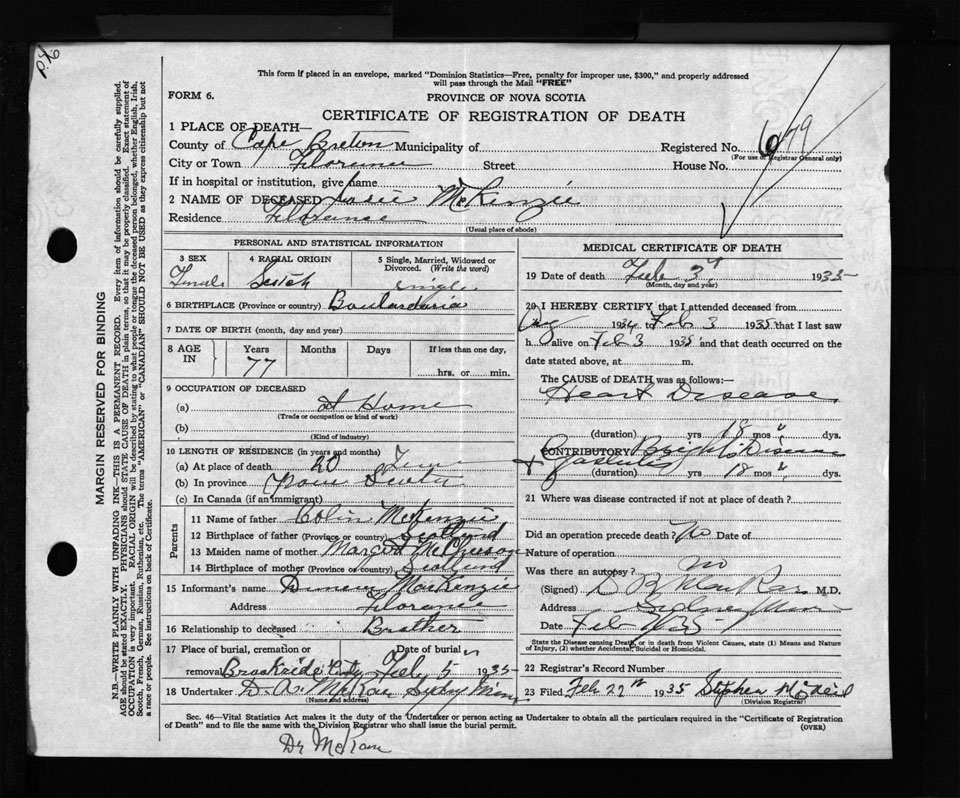 P.N.
This form if placed in an envelope, marked "Dominion Statistics—Free, penalty for improper use, $300," and properly addressed
will pass through the Mail "FREE"
FORM 6.
PROVINCE OF NOVA SCOTIA
CERTIFICATE OF REGISTRATION OF DEATH
1 PLACE OF DEATH—
County of Cape Breton Municipality of
Registered No.
(For use of Registrar General only)
City or Town Florence Street House No.
If in hospital or institution, give name
2 NAME OF DECEASED McKenzie
Residence Florence
(Usual place of abode)
MARGIN RESERVED FOR BINDING
N.B.—WRITE PLAINLY WITH UNFADING INK—THIS IS A PERMANENT RECORD. Every item of information should be carefully supplied.
AGE should be stated EXACTLY. PHYSICIANS should STATE CAUSE OF DEATH in plain terms, so that it may be properly classified. Exact statement of
OCCUPATION is very important. RACIAL ORIGIN will be described by stating to what people or tongue the deceased person belonged, whether English, Irish,
Scotch, French, German, Russian, Ruthenian, etc. The terms "AMERICAN" or "CANADIAN" SHOULD NOT BE USED as they express citizenship but not
a race or people. See instructions on back of Certificate.
PERSONAL AND STATISTICAL INFORMATION
3 SEX
Female
4 RACIAL ORIGIN
Scotch
5 Single, Married, Widowed or
Divorced. (Write the word)
single
6 BIRTHPLACE (Province or country) Boulardarie
7 DATE OF BIRTH (month, day and year)
8 AGE
IN
Years
77
Months
Days
If less than one day,
hrs. or min.
9 OCCUPATION OF DECEASED
(a) At Home
(Trade or occupation or kind of work)
(b)
(Kind of industry)
10 LENGTH OF RESIDENCE (in years and months)
(a) At place of death 20
(b) In province Nova Scotia
(c) In Canada (if an immigrant)
Parents
11 Name of father Colin McKenzie
12 Birthplace of father (Province or country) Scotland
13 Maiden name of mother
14 Birthplace of mother (Province or country) Scotland
15 Informant's name Duncan MacKenzie
Address Florence
16 Relationship to deceased Brother
17 Place of burial, cremation or removal Date of burial
Brookside Cty Feb 5 1935
18 Undertaker Sydney Mines
(Name and address)
MEDICAL CERTIFICATE OF DEATH
19 Date of death Feb 3 1935
(Month, day and year)
20 I HEREBY CERTIFY that I attended deceased from
Aug 1934 to Feb 3 1935 that I last saw
h alive on Feb 3 1935 and that death occurred on the
date stated above, at m.
The CAUSE OF DEATH was as follows:—
Heart Disease
(duration) yrs 18 mos dys.
CONTRIBUTORY Brights Disease
(duration) yrs 18 mos dys.
21 Where was disease contracted if not at place of death?
Did an operation precede death? No Date of
Nature of operation
Was there an autopsy? No
(Signed) M.D.
Address Sydney Mines
Date Feb
State the Disease causing Death, or in death from Violent Causes, state (1) Means and Nature
of Injury, (2) whether Accidental, Suicidal or Homicidal.
22 Registrar's Record Number
23 Filed Feb 22 1935 Stephen McNeil
(Division Registrar)
Sec. 46—Vital Statistics Act makes it the duty of the Undertaker or person acting as Undertaker to obtain all the particulars required in the "Certificate of Registration
of Death" and to file same with the Division Registrar who shall issue the burial permit.
(OVER)
Dr